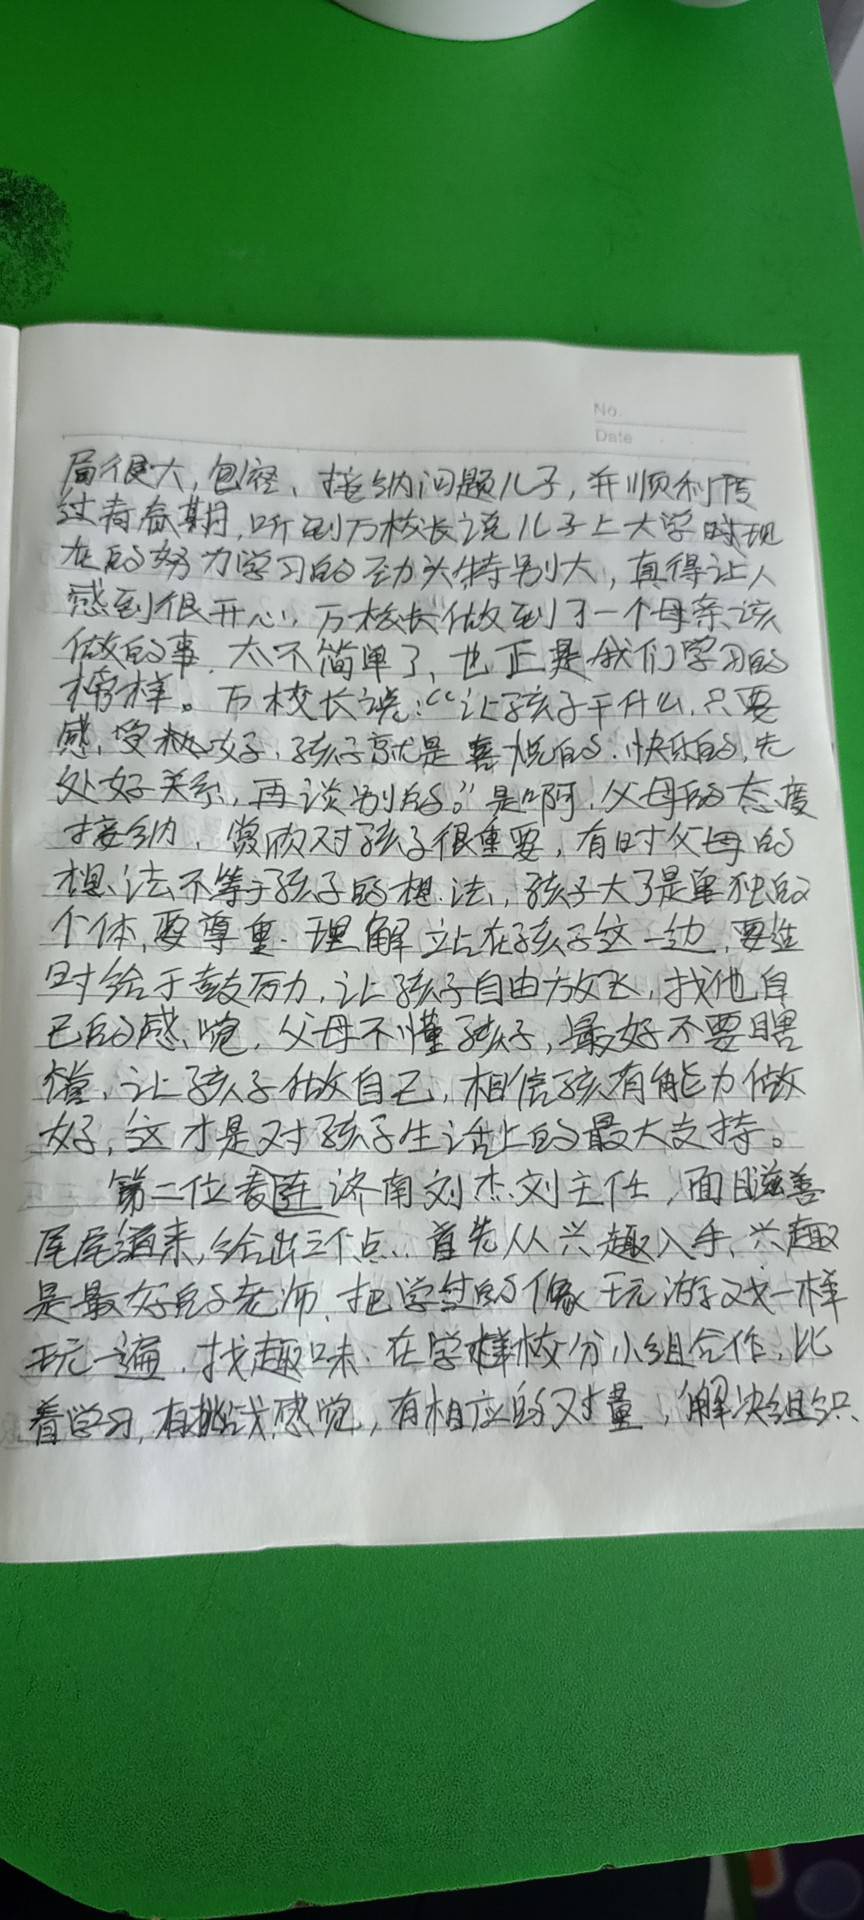 No.
Date
局很大,包容、接纳问题儿子,并顺利度
过青春期,听到万校长说儿子上大学时现
在的努力学习的劲头特别大,真得让人
感到很开心,万校长做到了一个母亲该
做的事,太不简单了,也正是我们学习的
榜样。万校长说:“让孩子干什么,只要
感受极好,孩子就是喜悦的、快乐的,先
处好关系,再谈别的。”是啊,父母的态度
接纳、赏欣对孩子很重要,有时父母的
想法不等于孩子的想法,孩子大了是单独的
个体,要尊重、理解立占在孩子这一边,要适
时给于鼓励,让孩子自由放飞,找他自
己的感觉,父母不懂孩子,最好不要瞎
,让孩子做自己,相信孩有能力做
好,这才是对孩子生活上的最大支持。
第二位 济南刘杰刘主任,面目滋善
尾尾道来,给出三个点..首先从兴趣入手,兴趣
是最好的老师,把学过的像玩游戏一样
玩一遍,找趣味,在学校分小组合作,比
着学习,有挑战感觉,有相应的对量,解决组织